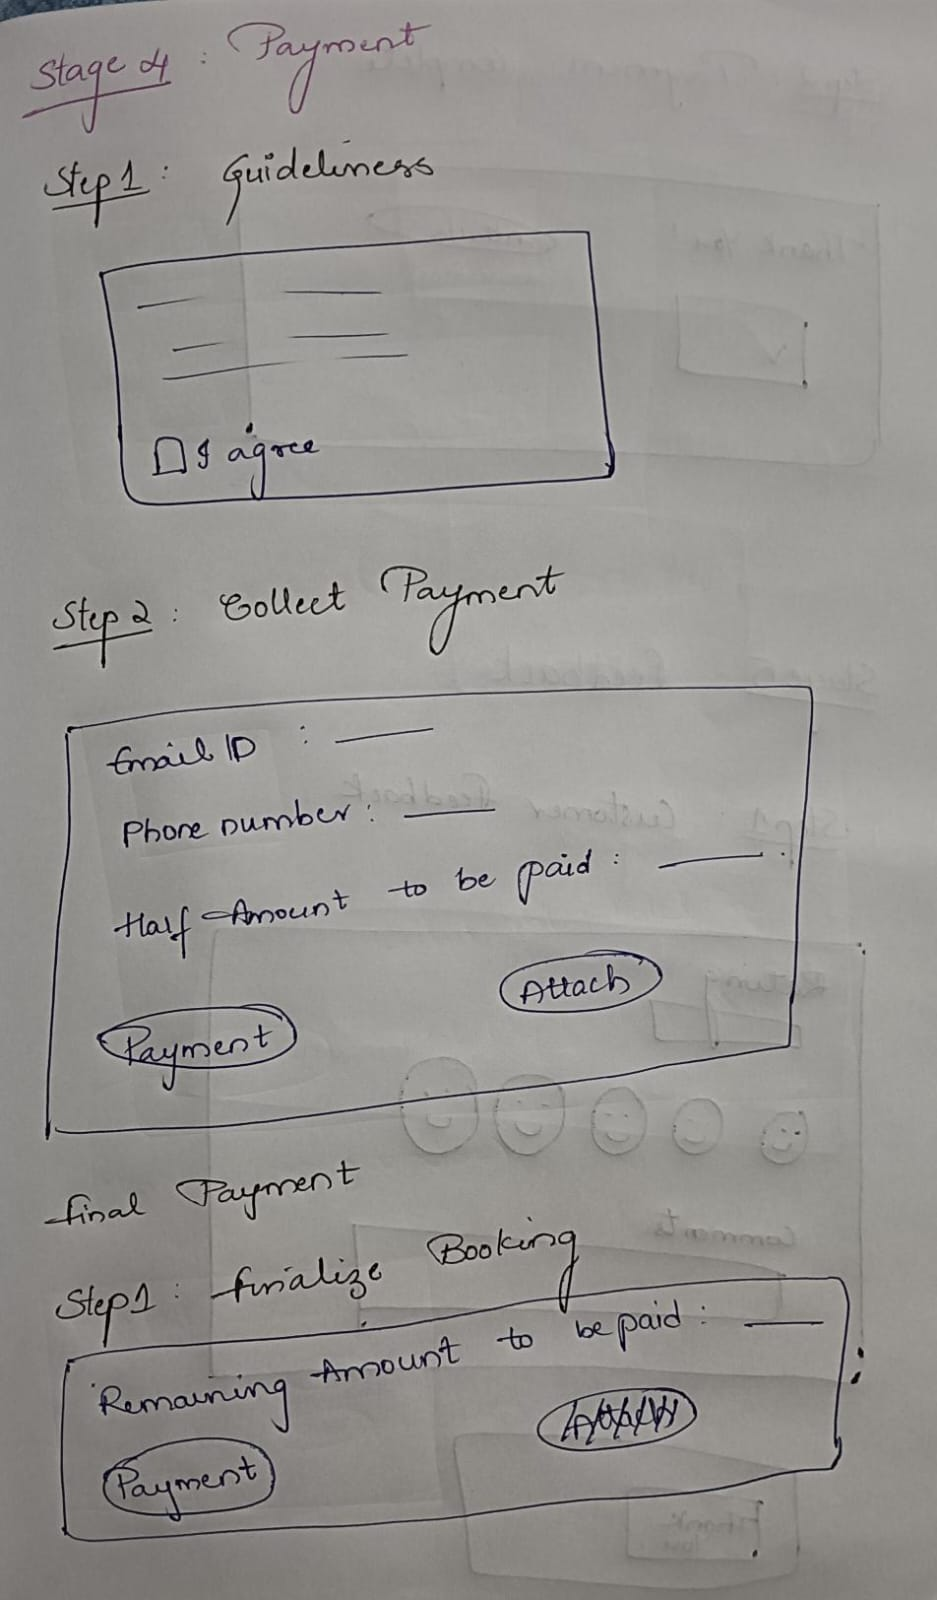 Stage 4 : Payment
Step 1 : Guideliness
I agree
Step 2 : Collect Payment
Email ID :
Phone number :
Half Amount to be paid :
Attach
Payment
Final Payment
Step 1 : Finalize Booking
Remaining Amount to be paid :
Payment